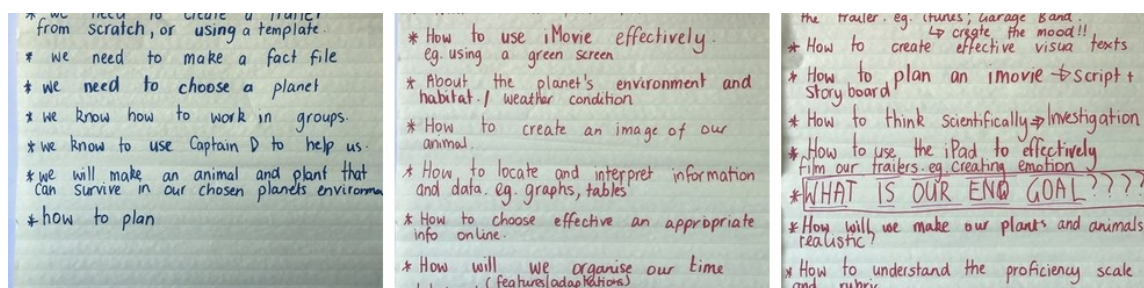 * we need to create a trailer
from scratch, or using a template.
* we need to make a fact file
* we need to choose a planet
* we know how to work in groups.
* we know to use Captain D to help us.
* we will make an animal and plant that
can survive in our chosen planets environme
* how to plan
* How to use iMovie effectively.
eg. using a green screen
* About the planet's environment and
habitat./ weather condition
* How to create an image of our
animal.
* How to locate and interpret information
and data. eg. graphs, tables
* How to choose effective an appropriate
info online.
* How will we organise our time
(features/adaptations)
the trailer. eg. itunes, Garage Band.
↳ create the mood!!
* How to create effective visua texts
* How to plan an imovie → script +
story board
* How to think scientifically ⇒ Investigation
* How to use the iPad to effectively
film our trailers. eg. Creating emotion
* WHAT IS OUR END GOAL????
* How will we make our plants and animals
realistic?
* How to understand the proficiency scale
and rubric